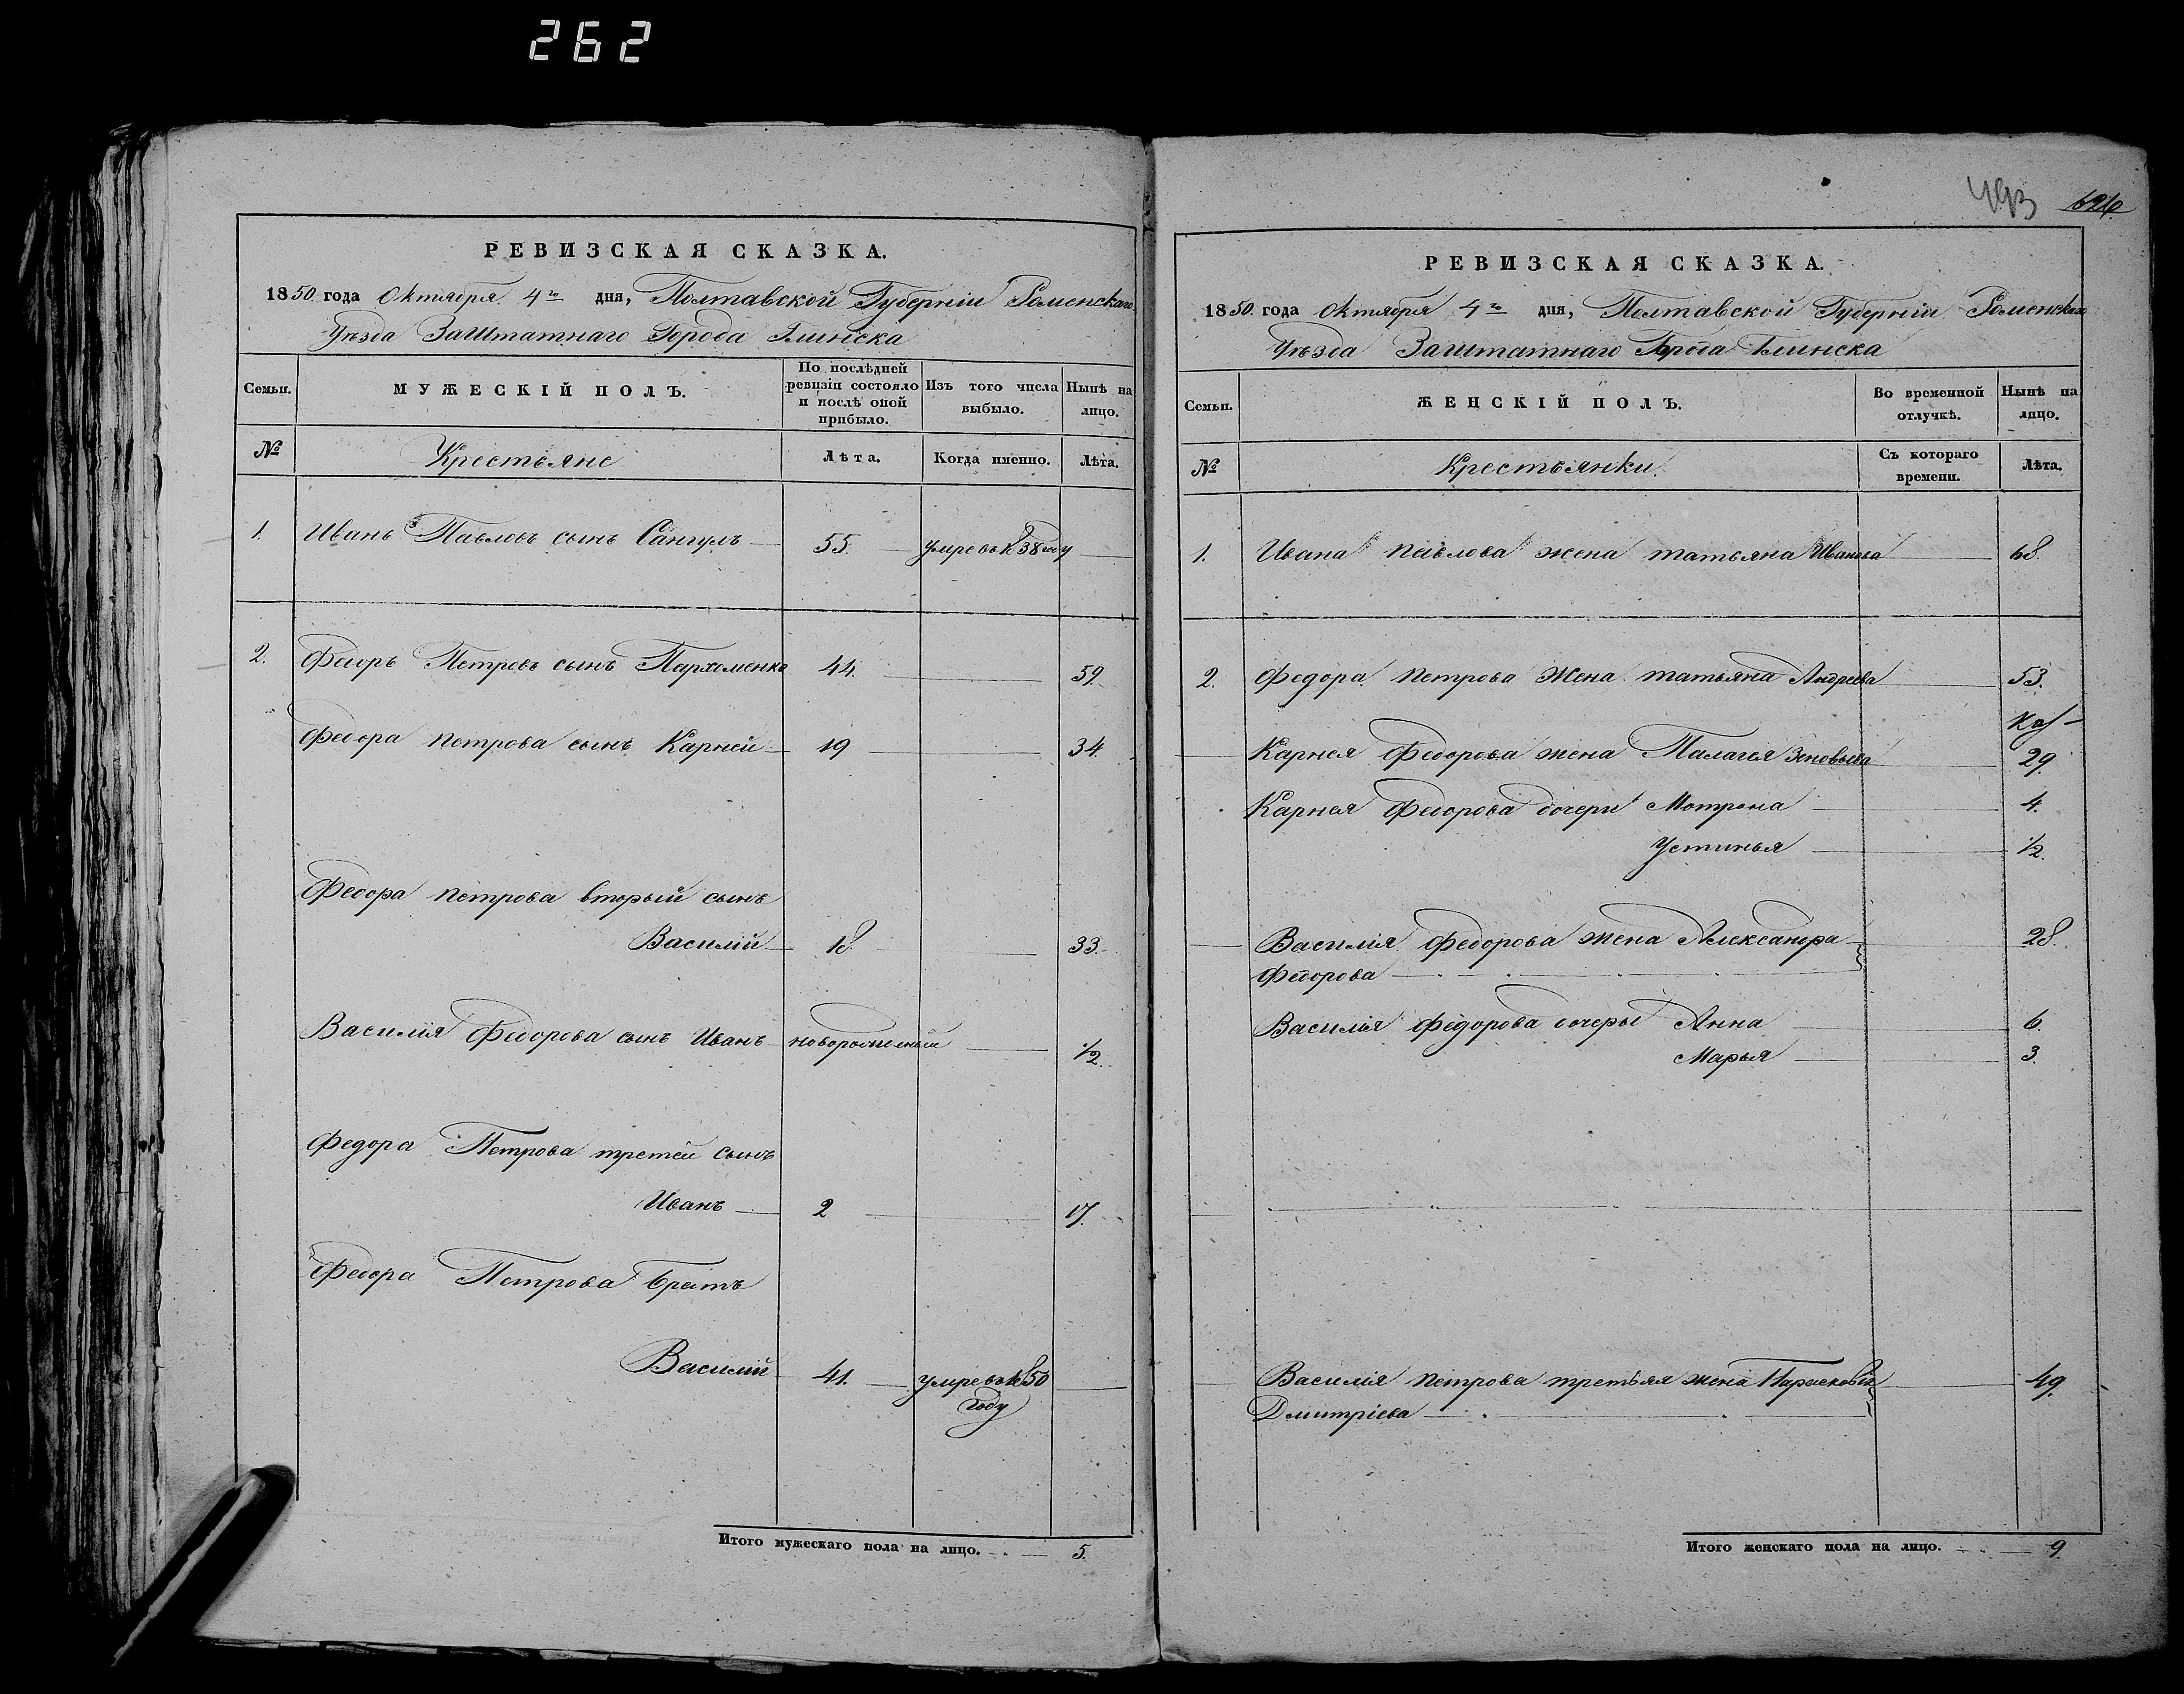 262
РЕВИЗСКАЯ СКАЗКА.
1850 года Октября 4го дня, Полтавской Губерніи Роменскаго
Уѣзда Заштатнаго Города Глинска
Семьи.
МУЖЕСКІЙ ПОЛЪ.
По послѣдней ревизіи состояло и послѣ оной прибыло.
Изъ того числа выбыло.
Нынѣ на лицо.
№
Крестьяне
Лѣта.
Когда именно.
Лѣта.
1. Иванъ Павловъ сынъ Сангулъ 55. умре въ 1838 году
2. Федоръ Петровъ сынъ Пархоменко 44. 59.
Федора Петрова сынъ Карней 19 34.
Федора Петрова вторый сынъ
Василій 18. 33.
Василія Федорова сынъ Иванъ новорожденный 1/2.
Федора Петрова третей сынъ
Иванъ 2 17.
Федора Петрова братъ
Василий 41. умре въ 1850
году
Итого мужескаго пола на лицо. 5.
493 626
РЕВИЗСКАЯ СКАЗКА.
1850 года Октября 4го дня, Полтавской Губерніи Роменскаго
Уѣзда Заштатнаго Города Глинска
Семьи.
ЖЕНСКІЙ ПОЛЪ.
Во временной отлучкѣ.
Нынѣ на лицо.
№
Крестьянки.
Съ котораго времени.
Лѣта.
1. Ивана Павлова жена татьяна Иванова 68.
2. Федора Петрова Жена татьяна Андреева 53.
Карнея Федорова жена Палагея Зеновьева 29.
Карнея Федорова дочери Мотрона 4.
Устинья 1/2.
Василія Федорова жена Александра 28.
Федорова
Василія Федорова дочеры Анна 6.
Марья 3.
Василія Петрова третьяя жена Парасковія 49.
Дмитріева
Итого женскаго пола на лицо. 9.